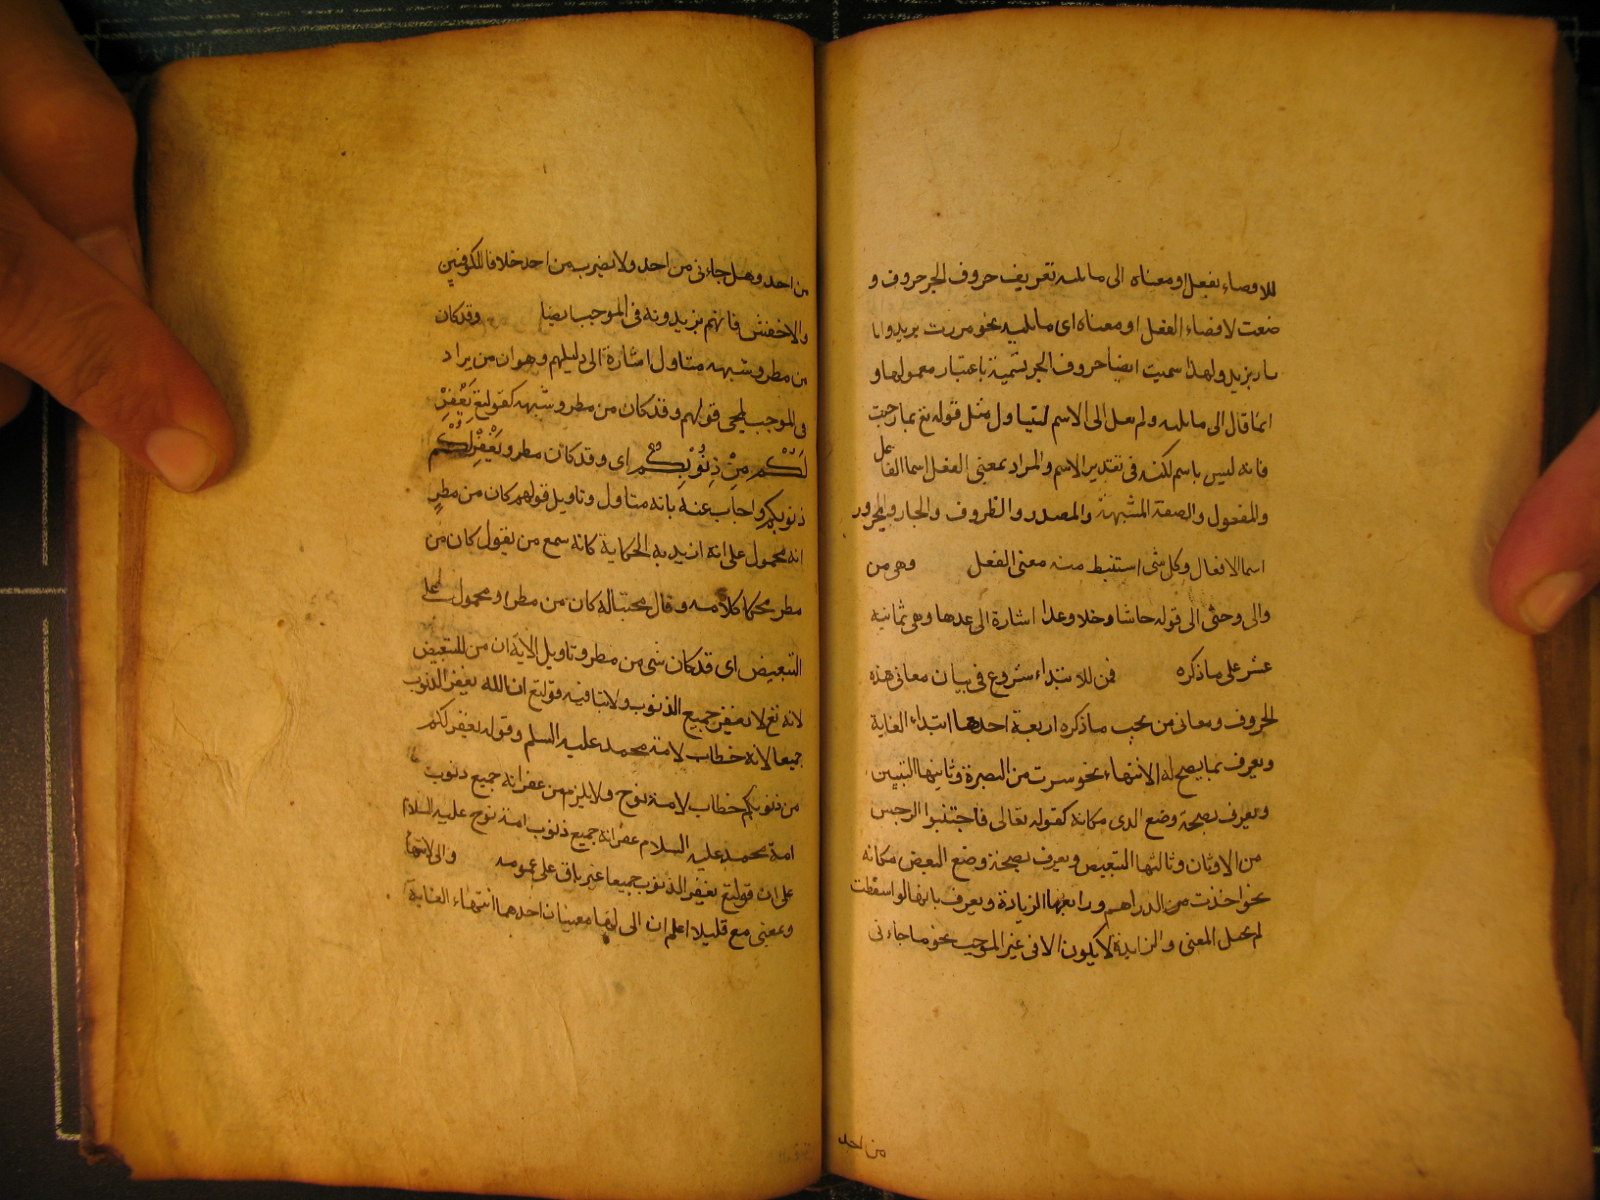 للافضاء بفعل او معناه الى ما يليه تعريف حروف الجر حروف و
ضعت لافضاء الفعل او معناه اى ما يليه نحو مررت بزيد وانا
مار بزيد ولهذا سميت ايضا حروف الجر تسمية باعتبار معمولها و
انما قال الى ما يليه ولم يقل الى الاسم ليتناول مثل قوله تع بما رحبت
فانه ليس باسم لكنه فى تقدير الاسم والمراد بمعنى الفعل اسما الفاعل
والمفعول والصفة المشبهة والمصدر والظروف والجار والمجرور
اسما الافعال وكل شى استنبط منه معنى الفعل وهى من
والى وحتى الى قوله حاشا وخلا وعدا اشارة الى عدها وهى ثمانية
عشر على ما ذكره فمن للابتداء شروع فى بيان معانى هذه
الحروف ومعانى من يجب ما ذكره اربعة احدها ابتداء الغاية
ويعرف بما يصح له الانتهاء نحو سرت من البصرة وثانيها التبيين
ويعرف بصحة وضع الذى مكانه كقوله تعالى فاجتنبوا الرجس
من الاوثان وثالثها التبعيض ويعرف بصحة وضع البعض مكانه
نحو اخذت من الدراهم ورابعها الزيادة ويعرف بانها لو اسقطت
لم يخل المعنى والزايدة لا يكون الا فى غير الموجب نحو ما جاءنى
من احد
من احد وهل جاءنى من احد ولا تضرب من احد خلافا للكوفيين
والاخفش فانهم يزيدونه فى الموجب ايضا وقد كان
من مطر وشبهه متاول اشارة الى دليلهم وهو ان من يراد
فى الموجب قولهم وقد كان من مطر وشبهه كقوله تع يَغْفِرْ
لَكُمْ مِنْ ذُنُوبِكُمْ اى وقد كان مطر ويَغْفِرْ لَكُمْ
ذنوبكم واجاب عنه بانه متاول وتاويل قولهم كان من مطر
انه محمول على انه اريد به الحكاية كانه سمع من يقول كان من
مطر محكيا كلامه وقال مجيبا له كان من مطر او محمول على
التبعيض اى قد كان شى من مطر وتاويل الاية ان من للتبعيض
لانه تع لا يغفر جميع الذنوب ولا ينافيه قوله تع ان الله يغفر الذنوب
جميعا لانه خطاب لامة محمد عليه السلم وقوله يغفر لكم
من ذنوبكم خطاب لامة نوح ولا يلزم من غفرانه جميع ذنوب
امة محمد عليه السلام غفرانه جميع ذنوب امة نوح عليه السلام
على ان قوله تع يغفر الذنوب جميعا غير باق على عمومه والى للانتهاء
وبمعنى مع قليلا اعلم ان الى لها معنيان احدهما انتهاء الغاية